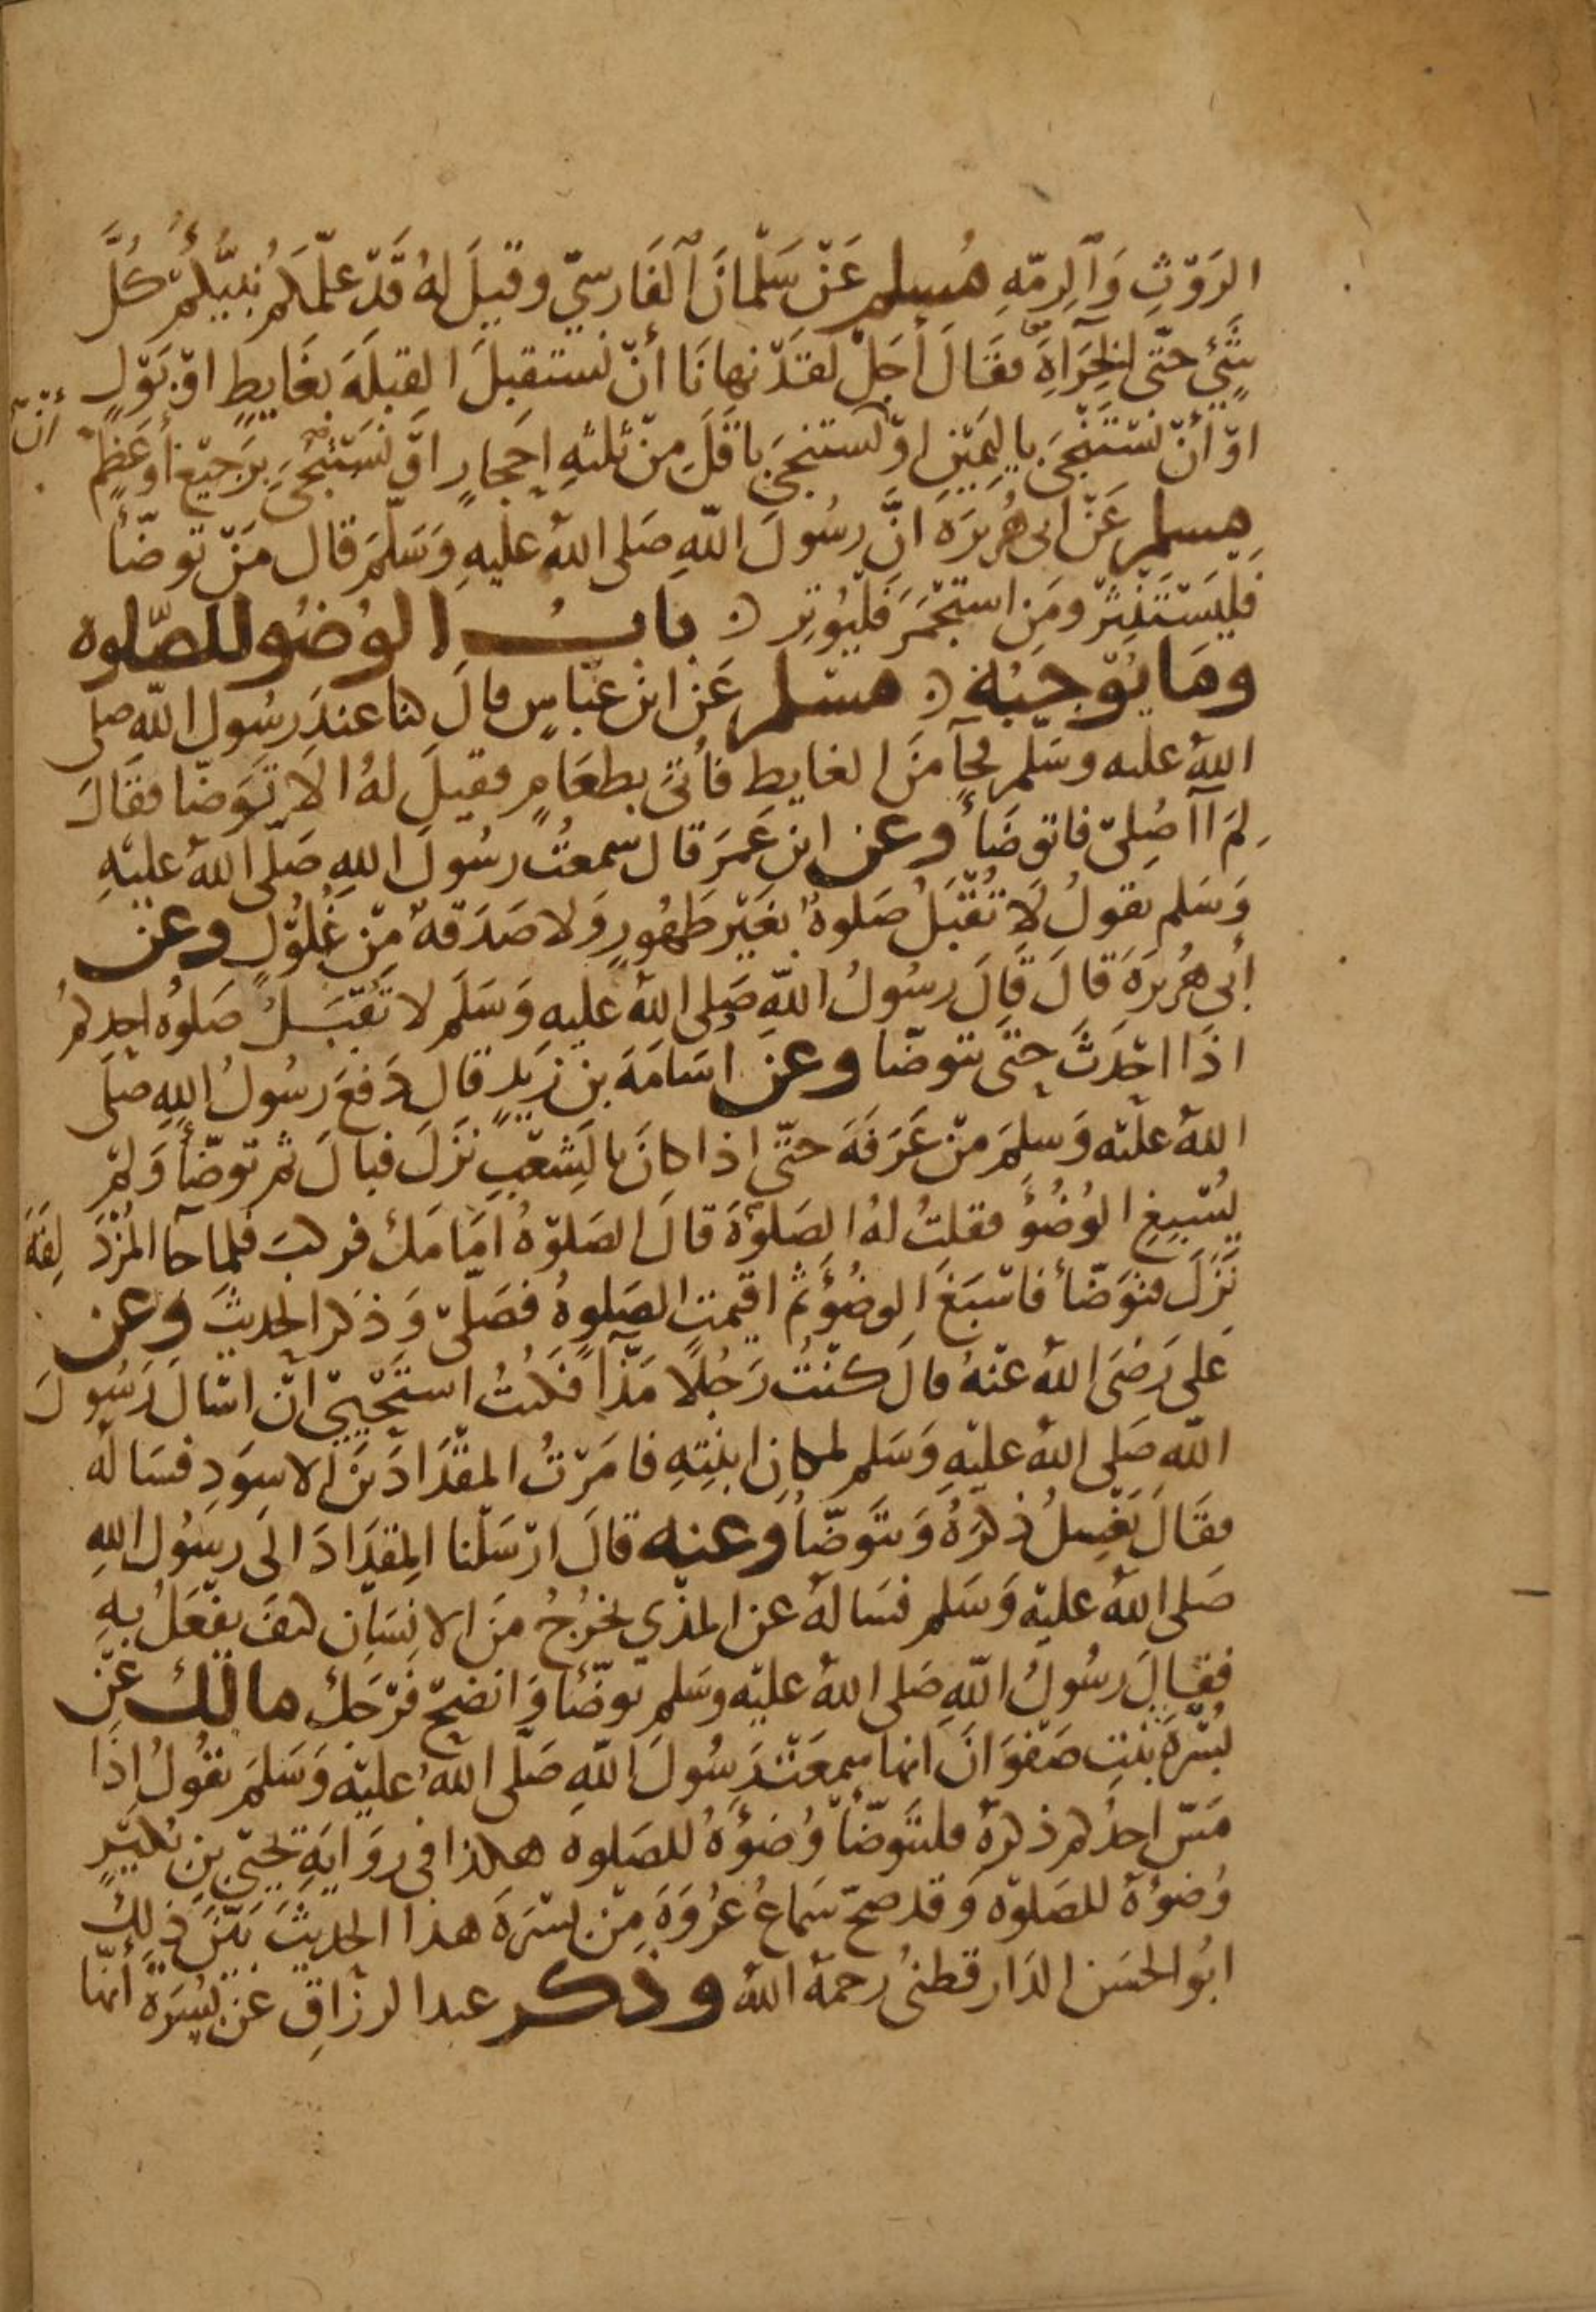 الرَوْثِ وَالرِمّهِ مُسلم عَنْ سَلْمانَ الفَارسيّ وقيلَ لهُ قَدْ علّمكم نَبيُّكُمْ كُلَّ
شَيْءٍ حتّى الخِرَاةَ فقَالَ أجَلْ لقَدْ نهانَا أنْ نستقبلَ القبلَهَ بغَايطٍ اوْ بَوْلٍ
اوْ أنْ نسْتَنْجىَ باليَمِيْنِ اوْ أنْ نستنجىَ باقَلَ مِنْ ثلثهِ احجارٍ اوْ نَسْتَنْجىَ برَجيْعٍ أوعَظمٍ
مسلم عَنْ ابى هُريرَه انَّ رسُولَ اللّهِ صَلى اللهُ عليهِ وَسَلّمَ قال مَنْ توضّأ
فَليَسْتَنْثِرْ ومَنِ استجْمَرَ فَلْيُوتِر ۞ بابُ الوُضُو للصّلوه
ومَا يُوْجِبُهُ ۞ مسْلم عَن ابن عبّاسٍ قالَ كنا عندَ رسُول اللّهِ صلى
اللهُ عليه وسَلم فجآ مِنَ الغايطِ فأُتىَ بطعَامٍ فقيلَ لهُ الَا تَوَضّا فقَالَ
لِمَ أأُصَلِىّ فاتوضَأ وعن ابن عُمَرَ قال سَمعتُ رسُولَ اللهِ صَلّى اللهُ عليْهِ
وَسَلم يقولُ لَا تُقْبَلُ صَلوةٌ بغَيْر طَهُورٍ وَلا صَدَقةٌ مِنْ غُلوُلٍ وعن
أبى هُريرَهَ قالَ قَالَ رسُولُ اللّهِ صَلى اللهُ عليهِ وَسَلَم لا تُقْبَلُ صَلوُه احدِكمُ
اذَا احْدَثَ حتّى يتوضّا وعن اسَامَهَ بنِ زيدٍ قال دَفعَ رسُولُ اللهِ صلى
اللهُ عليْه وَسلمَ مِنْ عَرَفَهَ حتّى اذا كانَ بالشِعْبِ نَزَلَ فبالَ ثم توضّأ وَلمْ
يُسْبِغِ الوُضُؤَ فقلتُ لهُ الصَلوٰةَ قالَ الصَلوٰهُ امَامَكَ فركبَ فلما جآ المُزْدَلِفَهَ
نَزَلَ فتوَضّأ فاسْبَغَ الوضُؤَ ثمْ اقيمتِ الصَلوهُ فصَلىّ وَذكر الحديثَ وعن
عَلى رَضىَ اللهُ عنْهُ قالَ كنْتُ رَجُلًا مَذّآ فكنتُ استَحْيىْ انْ اسْالَ رَسُولَ
اللّهِ صَلى اللهُ عليْهِ وَسَلم لمكانِ ابنتِهِ فامَرْتُ المقْدَادَ بنَ الاسوَدِ فسَاله
فقَالَ يَغْسِلُ ذكرَهُ وَيتَوضّأُ وعنه قالَ ارْسَلْنا المِقدَادَ الَى رسُول اللهِ
صَلى اللهُ عليْه وَسَلم فسَالهُ عن المذْى يخرُجُ مِنَ الانسَانِ كيفَ يفْعَلُ بهِ
فقالَ رسُولُ اللّهِ صَلى اللهُ عليْه وسَلم توضّأ وَانضحْ فَرْجَكَ مالك عَنْ
بُسْرَةَ بنْتِ صَفْوَانَ انها سمعَتْ رَسُولَ اللّهِ صَلّى اللهُ عليْه وَسَلمَ يقُولُ اذَا
مَسّ احدُكم ذكرَهُ فليتَوضّأ وُضوُءَهُ للصَلوه هكذا فى روَايَهِ يَحْيى بنِ بُكَيْرٍ
وُضوُءَهُ للصَلوٰه وَقد صحّ سَماعُ عُرْوَهَ مِنْ بسْرَهَ هذا الحَديثَ بَيّنَ ذلِكَ
ابُو الحسَن الدَارقطنىُ رحمهُ اللهُ وذكر عبد الرزاقِ عَن بُسْرَةَ أنّها